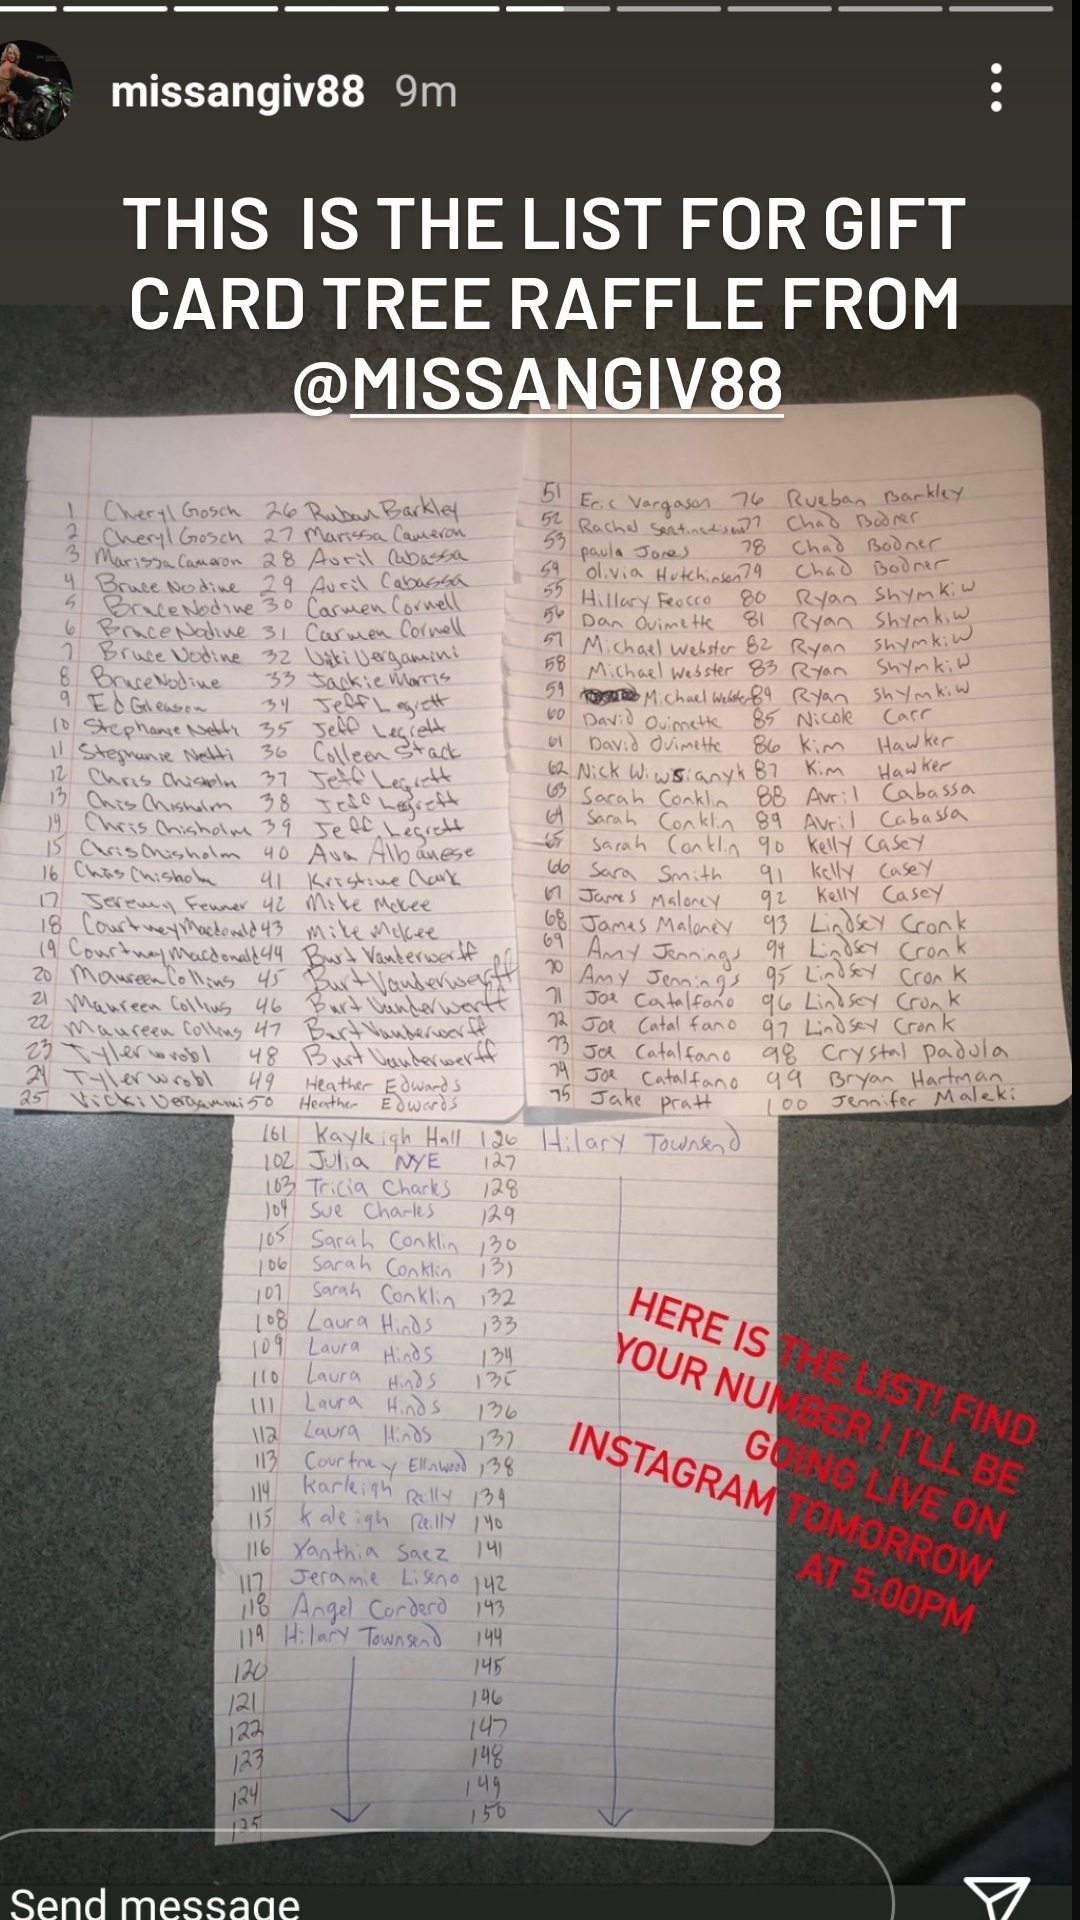 missangiv88 9m
THIS IS THE LIST FOR GIFT
CARD TREE RAFFLE FROM
@MISSANGIV88
1 Cheryl Gosch 26 Ruban Barkley
2 Cheryl Gosch 27 Marissa Cameron
3 Marissa Cameron 28 Avril Cabassa
4 Bruce Nodine 29 Avril Cabassa
5 Bruce Nodine 30 Carmen Cornell
6 Bruce Nodine 31 Carmen Cornell
7 Bruce Nodine 32 Vergamini
8 Bruce Nodine 33 Jackie Morris
9 Ed Gileason 34 Jeff Legrett
10 Stephanie Netti 35 Jeff Legrett
11 Stephanie Netti 36 Colleen Stack
12 Chris Chisholm 37 Jeff Legrett
13 Chis Chisholm 38 Jeff Legrett
14 Chris Chisholm 39 Jeff Legrett
15 Chris Chisholm 40 Ava Albanese
16 Chris Chisholm 41 Kristine Clark
17 Jeremy Fenner 42 Mike McKee
18 Courtney Macdonald 43 Mike McKee
19 Courtney Macdonald 44 Burt Vanderwerff
20 Maureen Collins 45 Burt Vanderwerff
21 Maureen Collins 46 Burt Vanderwerff
22 Maureen Collins 47 Burt Vanderwerff
23 Tyler Wrobl 48 Burt Vanderwerff
24 Tyler Wrobl 49 Heather Edwards
25 Vicki Vergamini 50 Heather Edwards
51 Eric Vargason 76 Rueban Barkley
52 Rachel 77 Chad Bodner
53 paula Jones 78 Chad Bodner
54 Olivia Hutchinson 79 Chad Bodner
55 Hillary Feocco 80 Ryan Shymkiw
56 Dan Ouimette 81 Ryan Shymkiw
57 Michael Webster 82 Ryan Shymkiw
58 Michael Webster 83 Ryan Shymkiw
59 Michael Webster 84 Ryan Shymkiw
60 David Ouimette 85 Nicole Carr
61 David Ouimette 86 Kim Hawker
62 Nick Wiwsianyk 87 Kim Hawker
63 Sarah Conklin 88 Avril Cabassa
64 Sarah Conklin 89 Avril Cabassa
65 Sarah Conklin 90 Kelly Casey
66 Sara Smith 91 Kelly Casey
67 James Maloney 92 Kelly Casey
68 James Maloney 93 Lindsey Cronk
69 Amy Jennings 94 Lindsey Cronk
70 Amy Jennings 95 Lindsey Cronk
71 Joe Catalfano 96 Lindsey Cronk
72 Joe Catalfano 97 Lindsey Cronk
73 Joe Catalfano 98 Crystal Padula
74 Joe Catalfano 99 Bryan Hartman
75 Jake Pratt 100 Jennifer Maleki
101 Kayleigh Hall 126 Hilary Townsend
102 Julia NYE 127
103 Tricia Charles 128
104 Sue Charles 129
105 Sarah Conklin 130
106 Sarah Conklin 131
107 Sarah Conklin 132
108 Laura Hinds 133
109 Laura Hinds 134
110 Laura Hinds 135
111 Laura Hinds 136
112 Laura Hinds 137
113 Courtney Ellnwood 138
114 Karleigh Reilly 139
115 Kaleigh Reilly 140
116 Xanthia Saez 141
117 Jeramie Liseno 142
118 Angel Cordero 143
119 Hilary Townsend 144
120 145
121 146
122 147
123 148
124 149
125 150
HERE IS THE LIST! FIND
YOUR NUMBER! I'LL BE
GOING LIVE ON
INSTAGRAM TOMORROW
AT 5:00PM
Send message